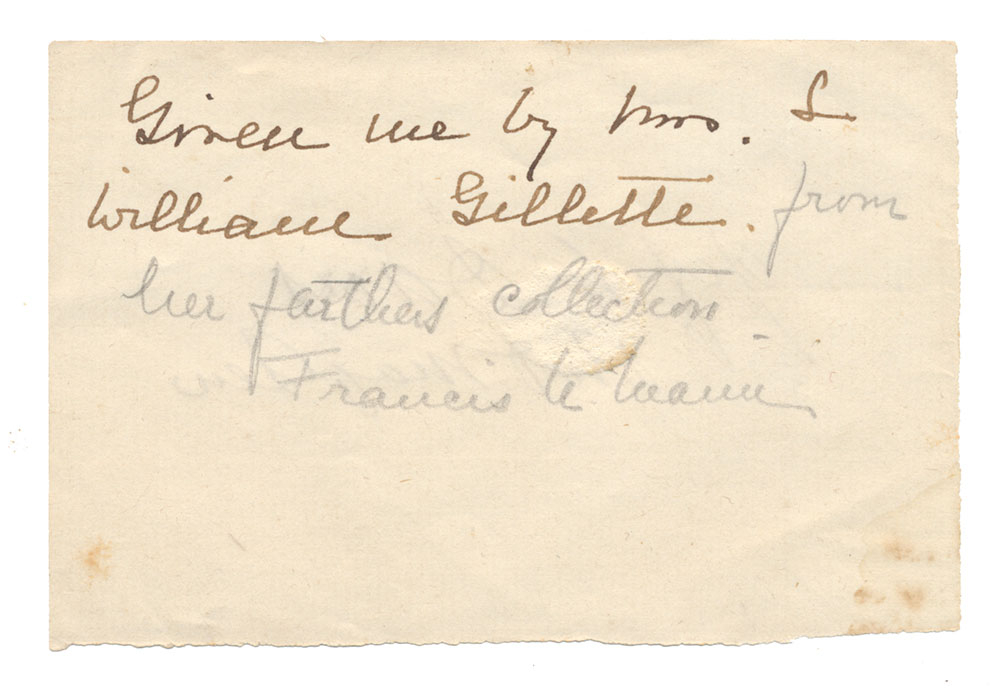 Given me by Mrs. L
William Gillette. from
her farthers collection
Francis